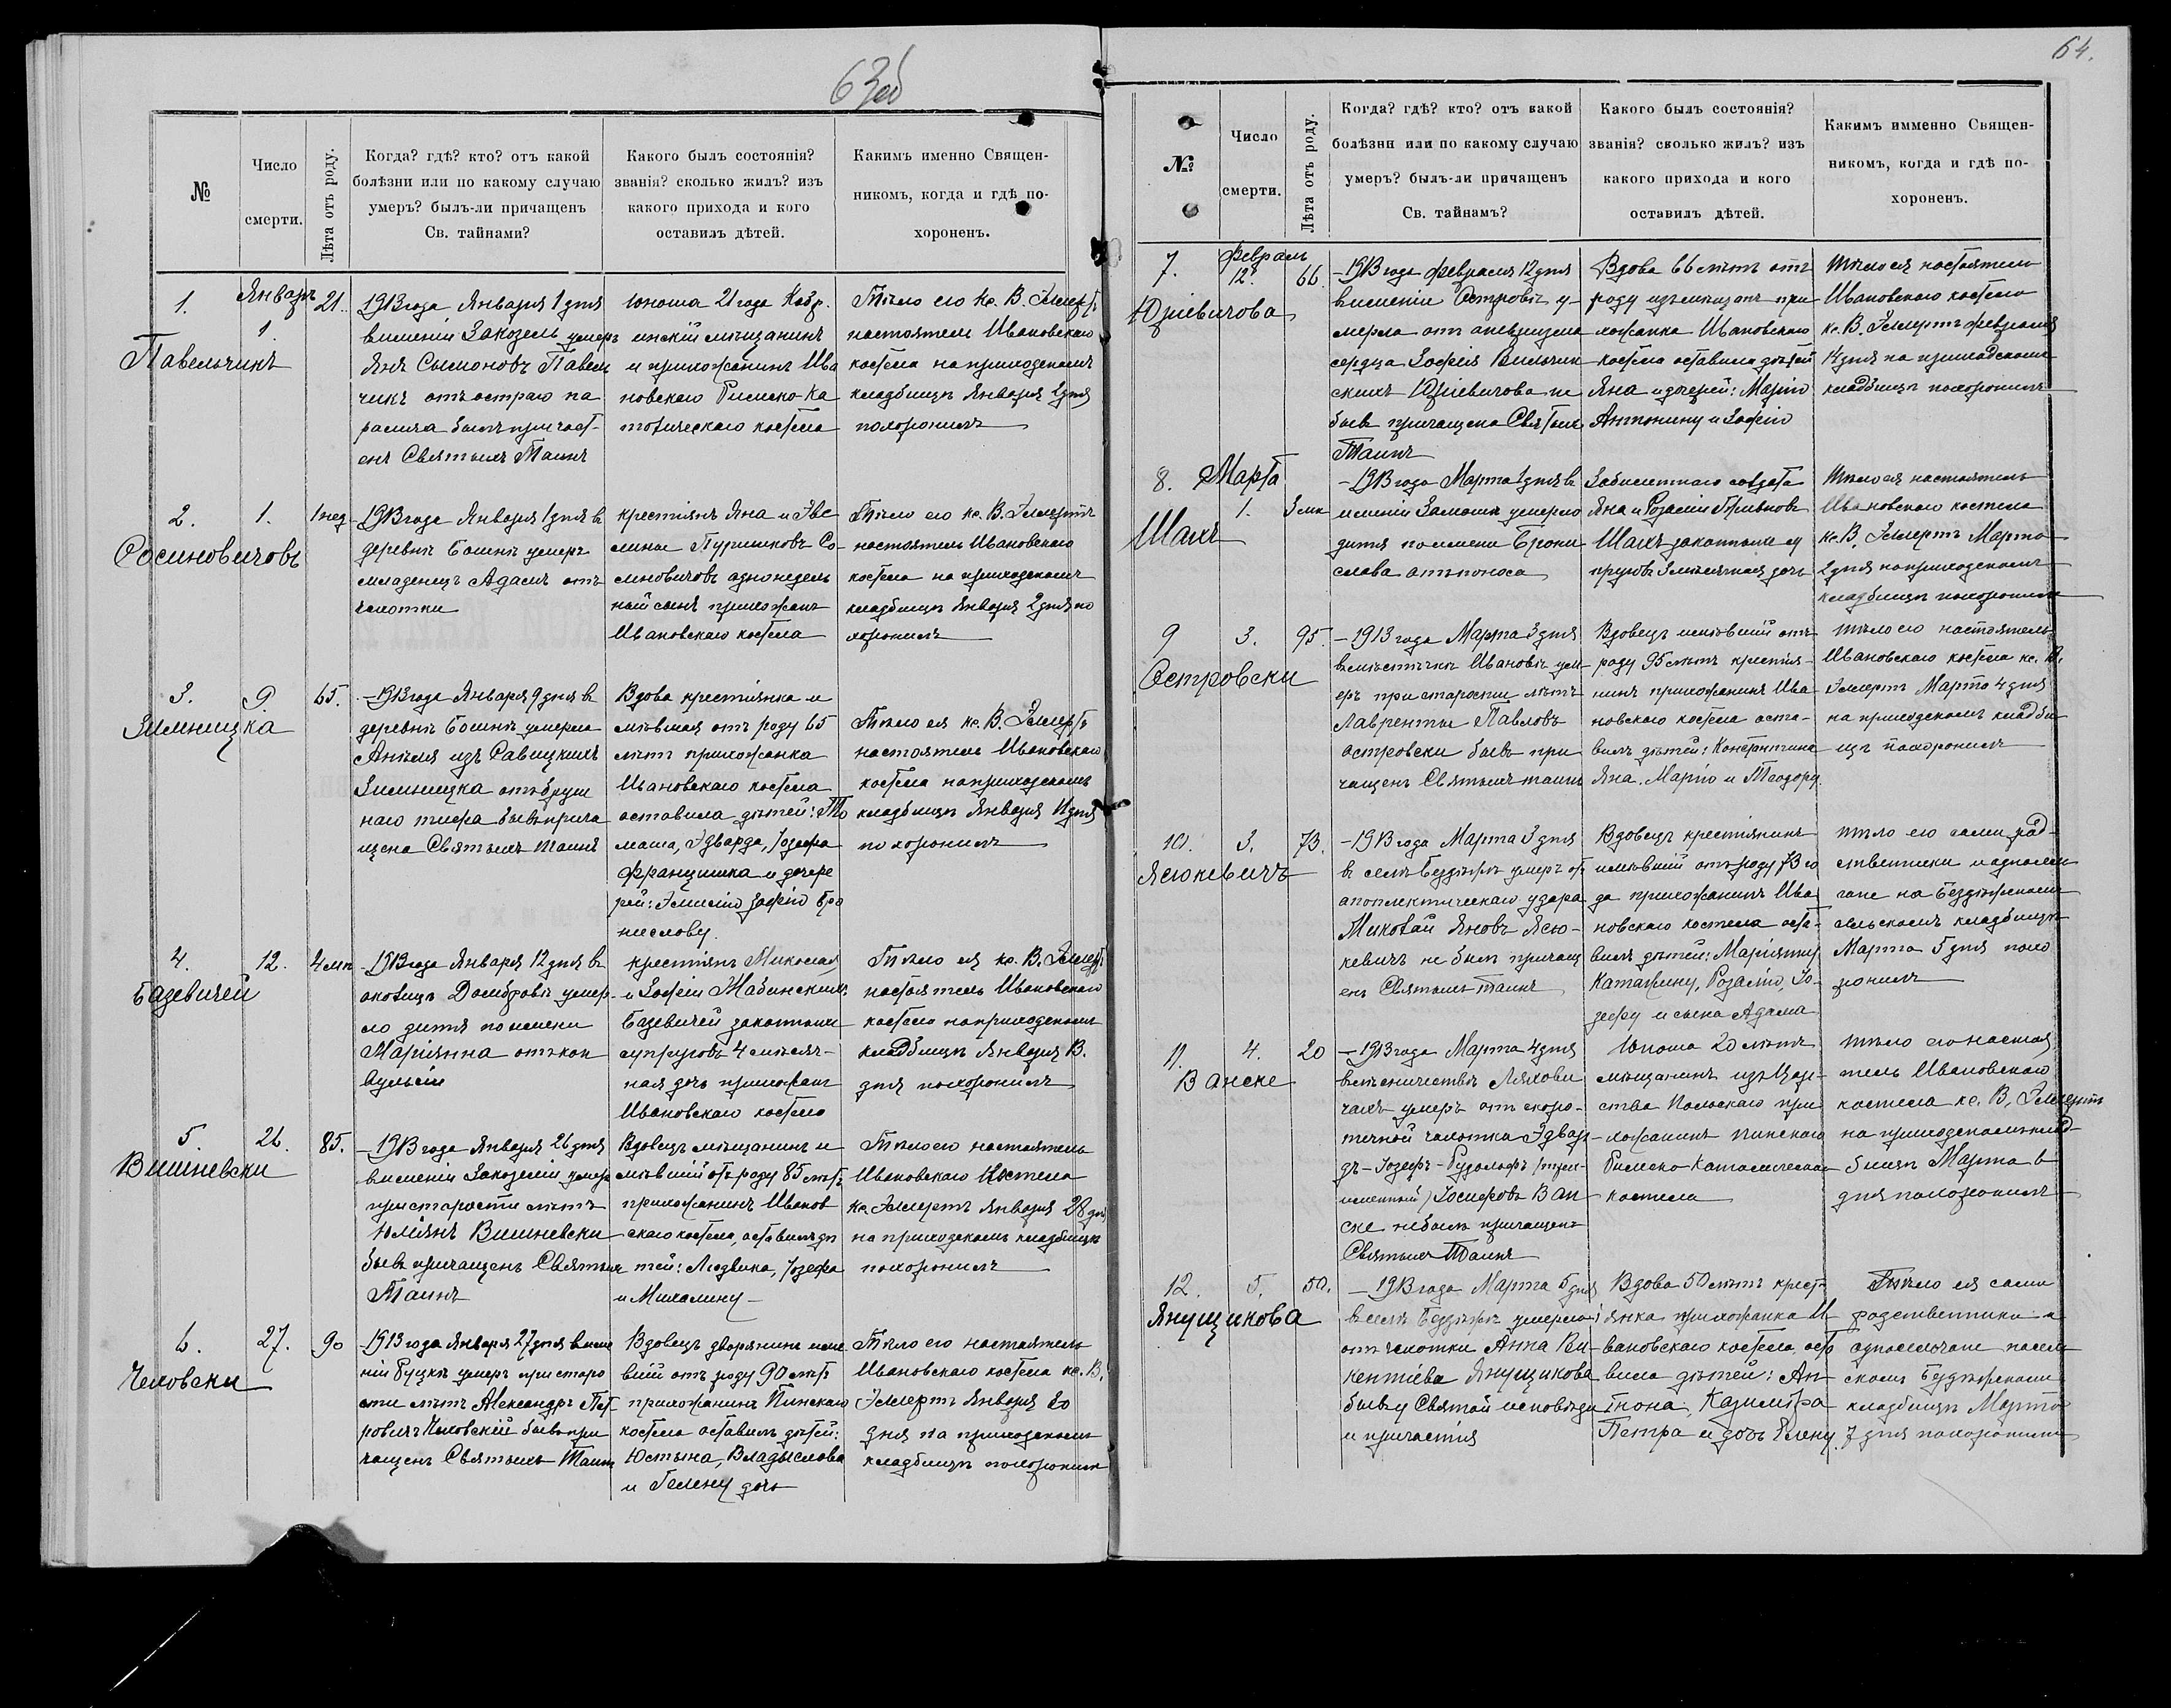 63об
№
Число
смерти.
Лѣта отъ роду.
Когда? гдѣ? кто? отъ какой
болѣзни или по какому случаю
умеръ? былъ-ли причащенъ
Св. тайнами?
Какого былъ состоянія?
званія? сколько жилъ? изъ
какого прихода и кого
оставилъ дѣтей.
Какимъ именно Священ-
никомъ, когда и гдѣ по-
хороненъ.
1.
Январь
1.
21.
Павельчикъ
1913 года Января 1 дня
въ имении Закозель умеръ
Янъ Сымоновъ Павель
чикъ отъ остраго па
ралича былъ причаст-
енъ Святыхъ Таинъ
Юноша 21 года Кобр.
инскій мѣщанинъ
и прихожанинъ Ива
новскаго Римско-Ка
толическаго костела
Тѣло его кс. В. Эллертъ
настоятель Ивановскаго
костела на приходскомъ
кладбищѣ Января 2 дня
похоронилъ
2.
1.
1 нед
Сосиновичовъ
1913 года Января 1 дня въ
деревнѣ умеръ
младенецъ Адамъ отъ
чахотки
крестіянъ Яна и Эве
лины Со-
синовичовъ однонедель
ный сынъ прихожанъ
Ивановскаго костела
Тѣло его кс. В. Эллертъ
настоятель Ивановскаго
костела на приходскомъ
кладбищѣ Января 2 дня по
хоронилъ
3.
9.
65.
Зимницка
1913 года Января 9 дня въ
деревнѣ умерла
Анеля изъ Савицкихъ
Зимницка отъ брюш
наго тифа бывъ прича
щена Святыхъ таинъ
Вдова крестіянка и
мѣвшая отъ роду 65
лѣтъ прихожанка
Ивановскаго костела
оставила дѣтей: То
маша, Эдварда, Іозефа
Францишка и доче
рей: Эмилію Зофію Бро
ниславу.
Тѣло ея кс. В. Эллертъ
настоятель Ивановскаго
костела на приходскомъ
кладбищѣ Января 11 дня
похоронилъ
4.
12.
4 мѣ
Базевичей
1913 года Января 12 дня въ
околицѣ Домбровѣ умер-
ло дитя по имени
Маріянна отъ кон
вульсіи
крестіянъ Миколая
и Зофіи Жабинскихъ
Базевичей законныхъ
супруговъ 4 мѣсяч-
ная дочь прихожанъ
Ивановскаго костела
Тѣло ея кс. В. Эллертъ
настоятель Ивановскаго
костела на приходскомъ
кладбищѣ Января 13.
дня похоронилъ
5.
26.
85.
Вишневски
1913 года Января 26 дня
въ имении Закозели умеръ
при старости лѣтъ
Юліянъ Вишневски
бывъ причащенъ Святыхъ
Таинъ
Вдовецъ мѣщанинъ и
мѣвшій отъ роду 85 лѣтъ
прихожанинъ Иванов
скаго костела, оставилъ дѣ
тей: Людвика, Іозефа
и Михалину
Тѣло его настоятель
Ивановскаго костела
кс. Эллертъ Января 28 дня
на приходскомъ кладбищѣ
похоронилъ
6.
27.
90
Чеховски
1913 года Января 27 дня въ име
ніи умеръ при старо
сти лѣтъ Александръ Пет-
ровичъ Чеховскій бывъ при
чащенъ Святыхъ Таинъ
Вдовецъ дворянинъ имѣ
вшій отъ роду 90 лѣтъ
прихожанинъ Пинскаго
костела оставилъ дѣтей:
Юстына, Владыслава
и Гелену дочь
Тѣло его настоятель
Ивановскаго костела кс. В.
Эллертъ Января 30
дня на приходскомъ
кладбищѣ похоронилъ
64.
№
Число
смерти.
Лѣта отъ роду.
Когда? гдѣ? кто? отъ какой
болѣзни или по какому случаю
умеръ? былъ-ли причащенъ
Св. тайнамъ?
Какого былъ состоянія?
званія? сколько жилъ? изъ
какого прихода и кого
оставилъ дѣтей.
Какимъ имменно Священ-
никомъ, когда и гдѣ по-
хороненъ.
7.
Февраль
12.
66.
Юзіевичова
1913 года Февраля 12 дня
въ имении Островѣ у-
мерла отъ аневризма
сердца Зофія Вильчин
скихъ Юзіевичова не
бывъ причащена Святыхъ
Таинъ
Вдова 66 лѣтъ отъ
роду изъ мѣщанъ при
хожанка Ивановскаго
костела оставила дѣтей
Яна и дочерей: Марію
Антонину и Зофію
Тѣло ея настоятель
Ивановскаго костела
кс. В. Эллертъ Февраля
14 дня на приходскомъ
кладбищѣ похоронилъ
8.
Марта
1.
3 мѣ
Шахъ
1913 года Марта 1 дня въ
имении Замошъ умерло
дитя по имени Брони
слава отъ поноса
Забилетнаго солдата
Яна и Розаліи
Шахъ законныхъ су
пруговъ 3 мѣсячная дочь
Тѣло ея настоятель
Ивановскаго костела
кс. В. Эллертъ Марта
2 дня на приходскомъ
кладбищѣ похоронилъ
9
3.
95.
Островски
1913 года Марта 3 дня
въ мѣстечкѣ Ивановѣ ум-
еръ при старости лѣтъ
Лаврентый Павловъ
Островски бывъ при
чащенъ Святыхъ таинъ
Вдовецъ имѣвшій отъ
роду 95 лѣтъ крестія-
нинъ прихожанинъ Ива
новскаго костела оста-
вилъ дѣтей: Константина
Яна. Марію и Теодору.
Тѣло его настоятель
Ивановскаго костела кс. В.
Эллертъ Марта 4 дня
на приходскомъ кладби
щѣ похоронилъ
10.
3.
73.
Ясюкевичъ
1913 года Марта 3 дня
въ селѣ Бездѣжѣ умеръ отъ
апоплектическаго удара
Миколай Яновъ Ясю-
кевичъ не былъ причащ
енъ Святыхъ таинъ
Вдовецъ крестіянинъ
имѣвшій отъ роду 73 го
да прихожанинъ Ива
новскаго костела оста-
вилъ дѣтей: Маріянну
Катажину, Розалію, Іо-
зефу и сына Адама
Тѣло его сами род-
ственники и односель
чане на Бездѣжскомъ
сельскомъ кладбищѣ
Марта 5 дня похо
ронили
11.
4.
20
Ванске
1913 года Марта 4 дня
въ лѣсничествѣ Ляхови
чахъ умеръ отъ скоро-
течной чахотки Эдвар-
дъ-Іозефъ-Рудольфъ (трех-
именный) Іосифовъ Ван
ске не былъ причащенъ
Святыхъ Таинъ
Юноша 20 лѣтъ
мѣщанинъ изъ Цар-
ства Польскаго при
хожанинъ Пинскаго
Римско Католическаго
костела
Тѣло его настоя
тель Ивановскаго
костела кс. В. Эллертъ
на приходскомъ клад-
бищѣ Марта 6
дня похоронилъ
12.
5.
50.
Янущикова
1913 года Марта 5 дня
въ селѣ Бездѣжѣ умерла
отъ чахотки Анна Ви-
кентіева Янущикова
бывъ у Святой исповѣди
и причастія
Вдова 50 лѣтъ крест
іянка прихожанка И
вановскаго костела ост
вила дѣтей: Ан-
тона, Казимира
Петра и дочь Елену.
Тѣло ея сами
родственники и
односельчане на сель
скомъ Бездѣжскомъ
кладбищѣ Марта
7 дня похоронили